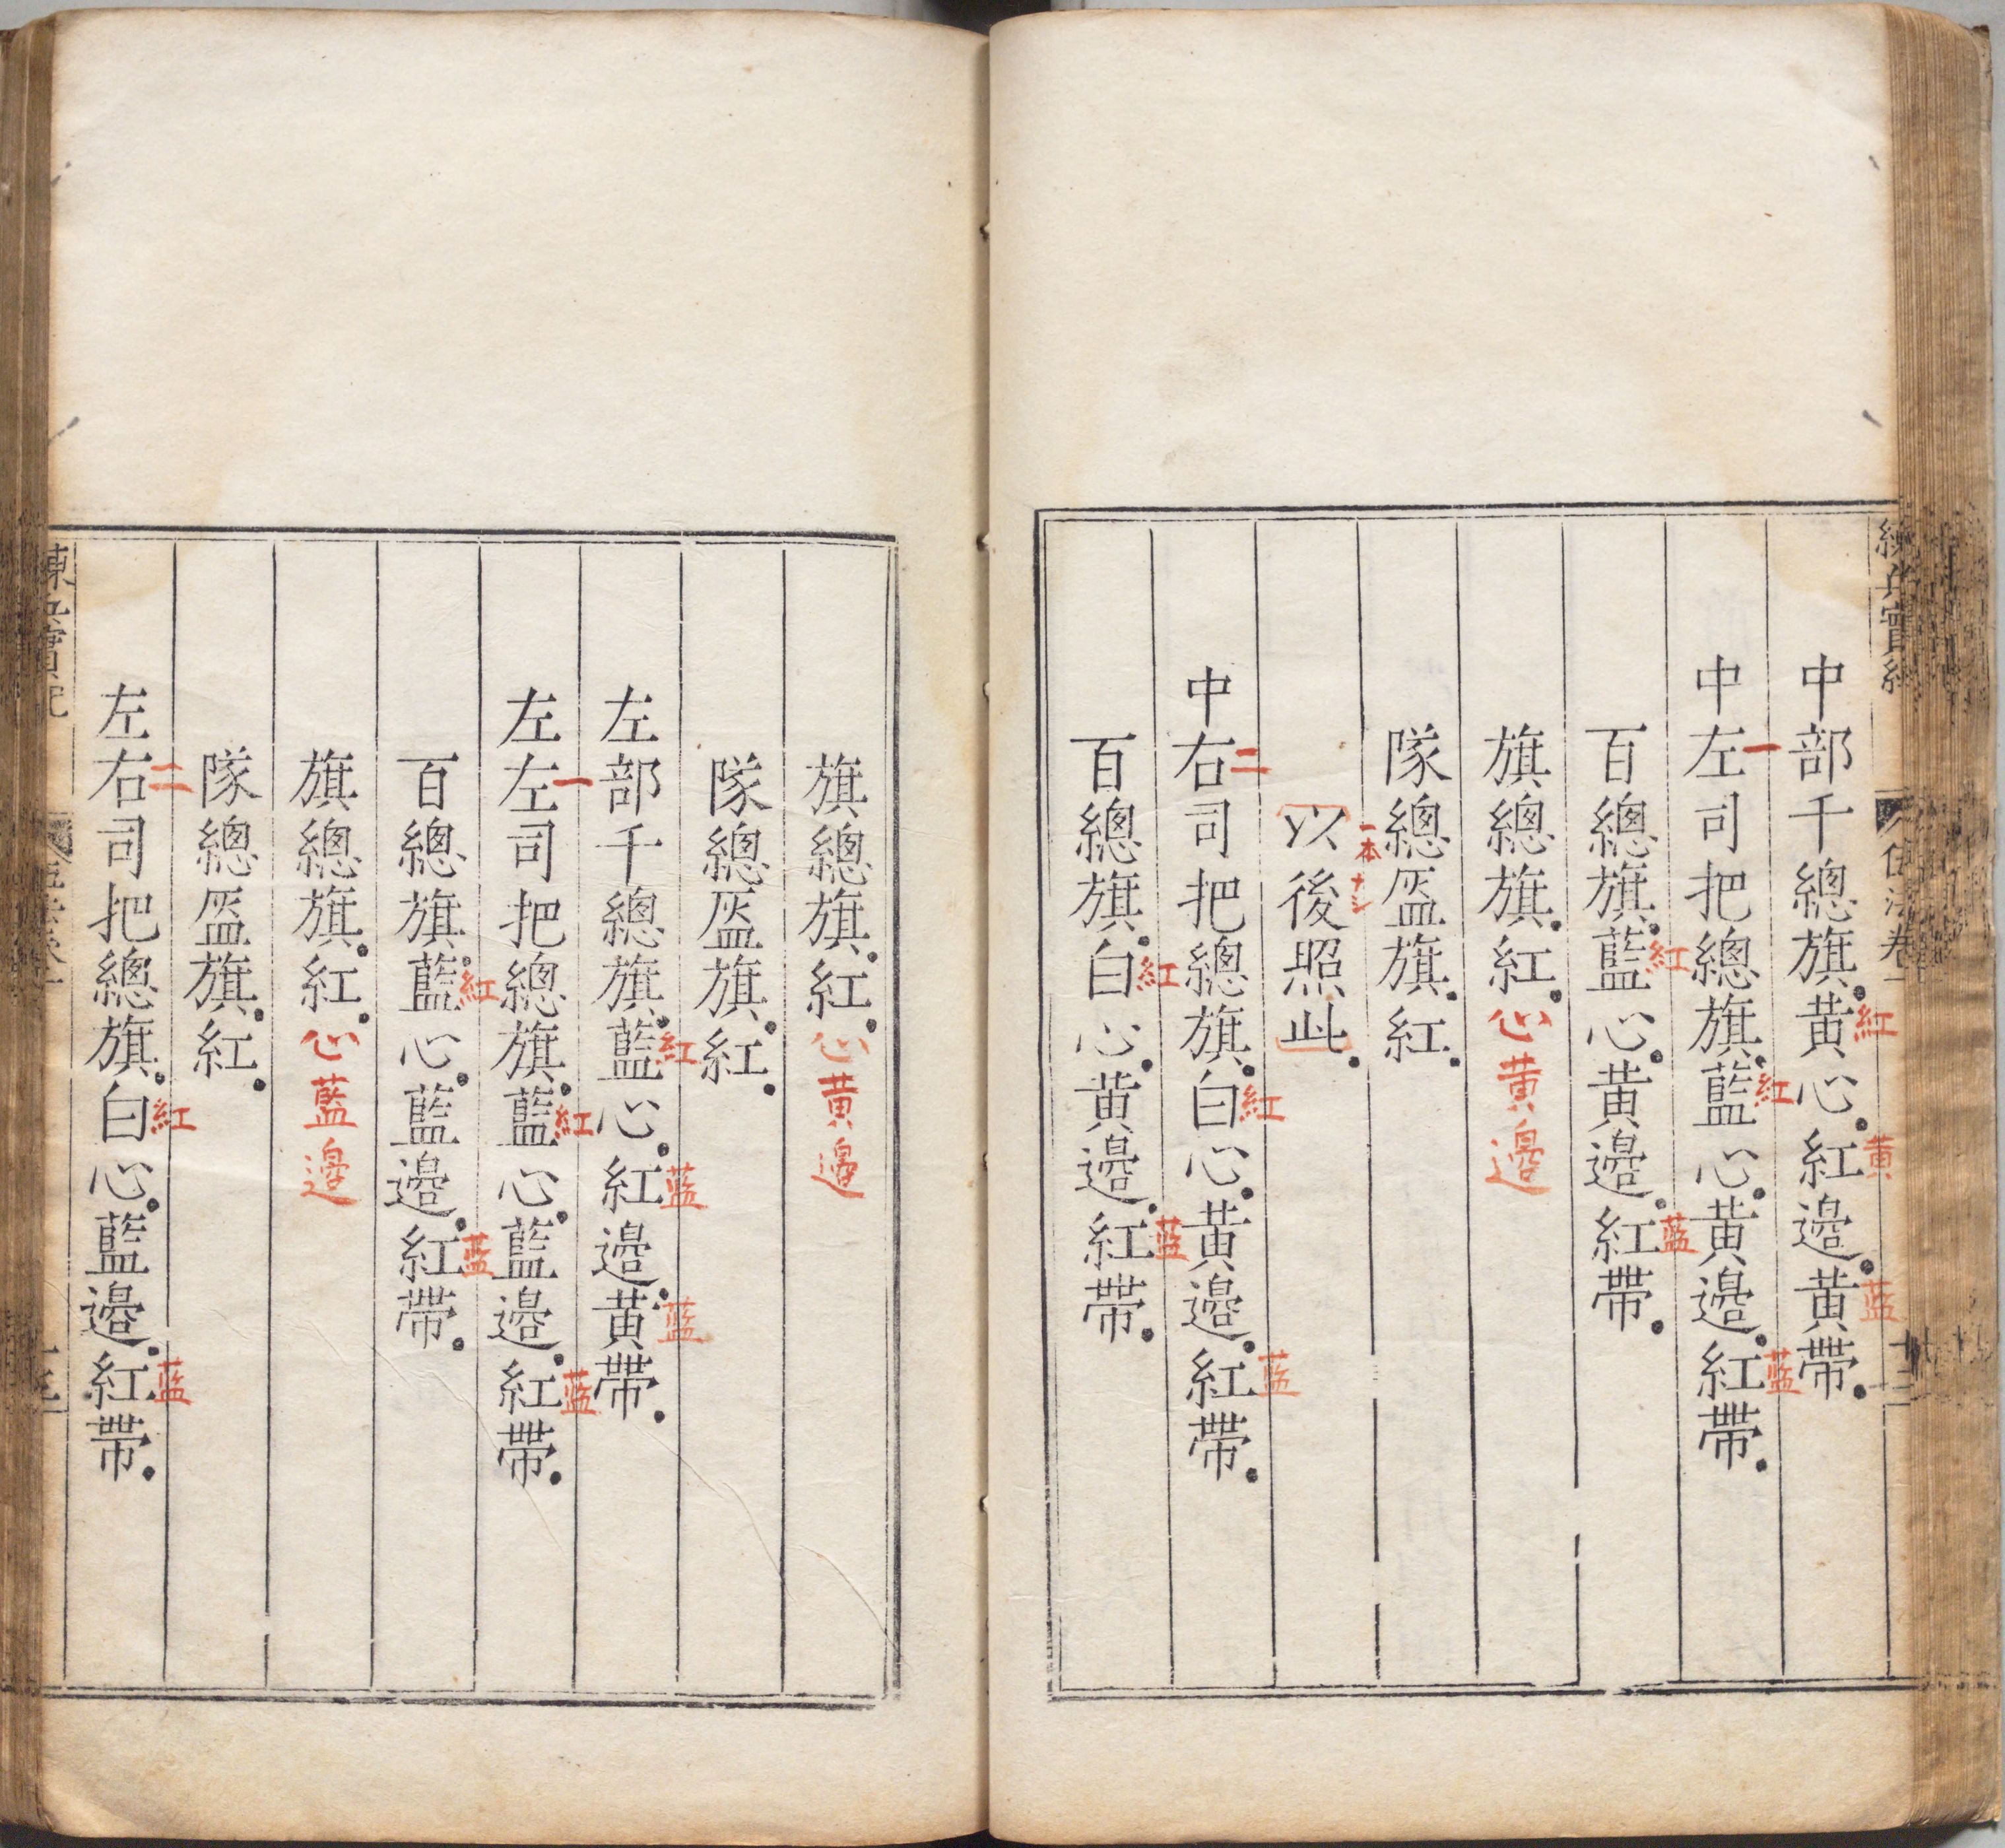 練兵實紀
卷一
十三
中部千總旗黃心紅邊黃帶
紅
黄
蓝
中左司把總旗藍心黃邊紅帶
一
紅
蓝
百總旗藍心黃邊紅帶
紅
蓝
旗總旗紅
心黄邊
隊總盔旗紅
以後照此
一本ナシ
中右司把總旗白心黃邊紅帶
二
紅
蓝
百總旗白心黃邊紅帶
紅
蓝
旗總旗紅
心黄邊
隊總盔旗紅
左部千總旗藍心紅邊黃帶
紅
蓝
蓝
左左司把總旗藍心藍邊紅帶
一
紅
蓝
百總旗藍心藍邊紅帶
紅
蓝
旗總旗紅
心藍邊
隊總盔旗紅
左右司把總旗白心藍邊紅帶
二
紅
蓝